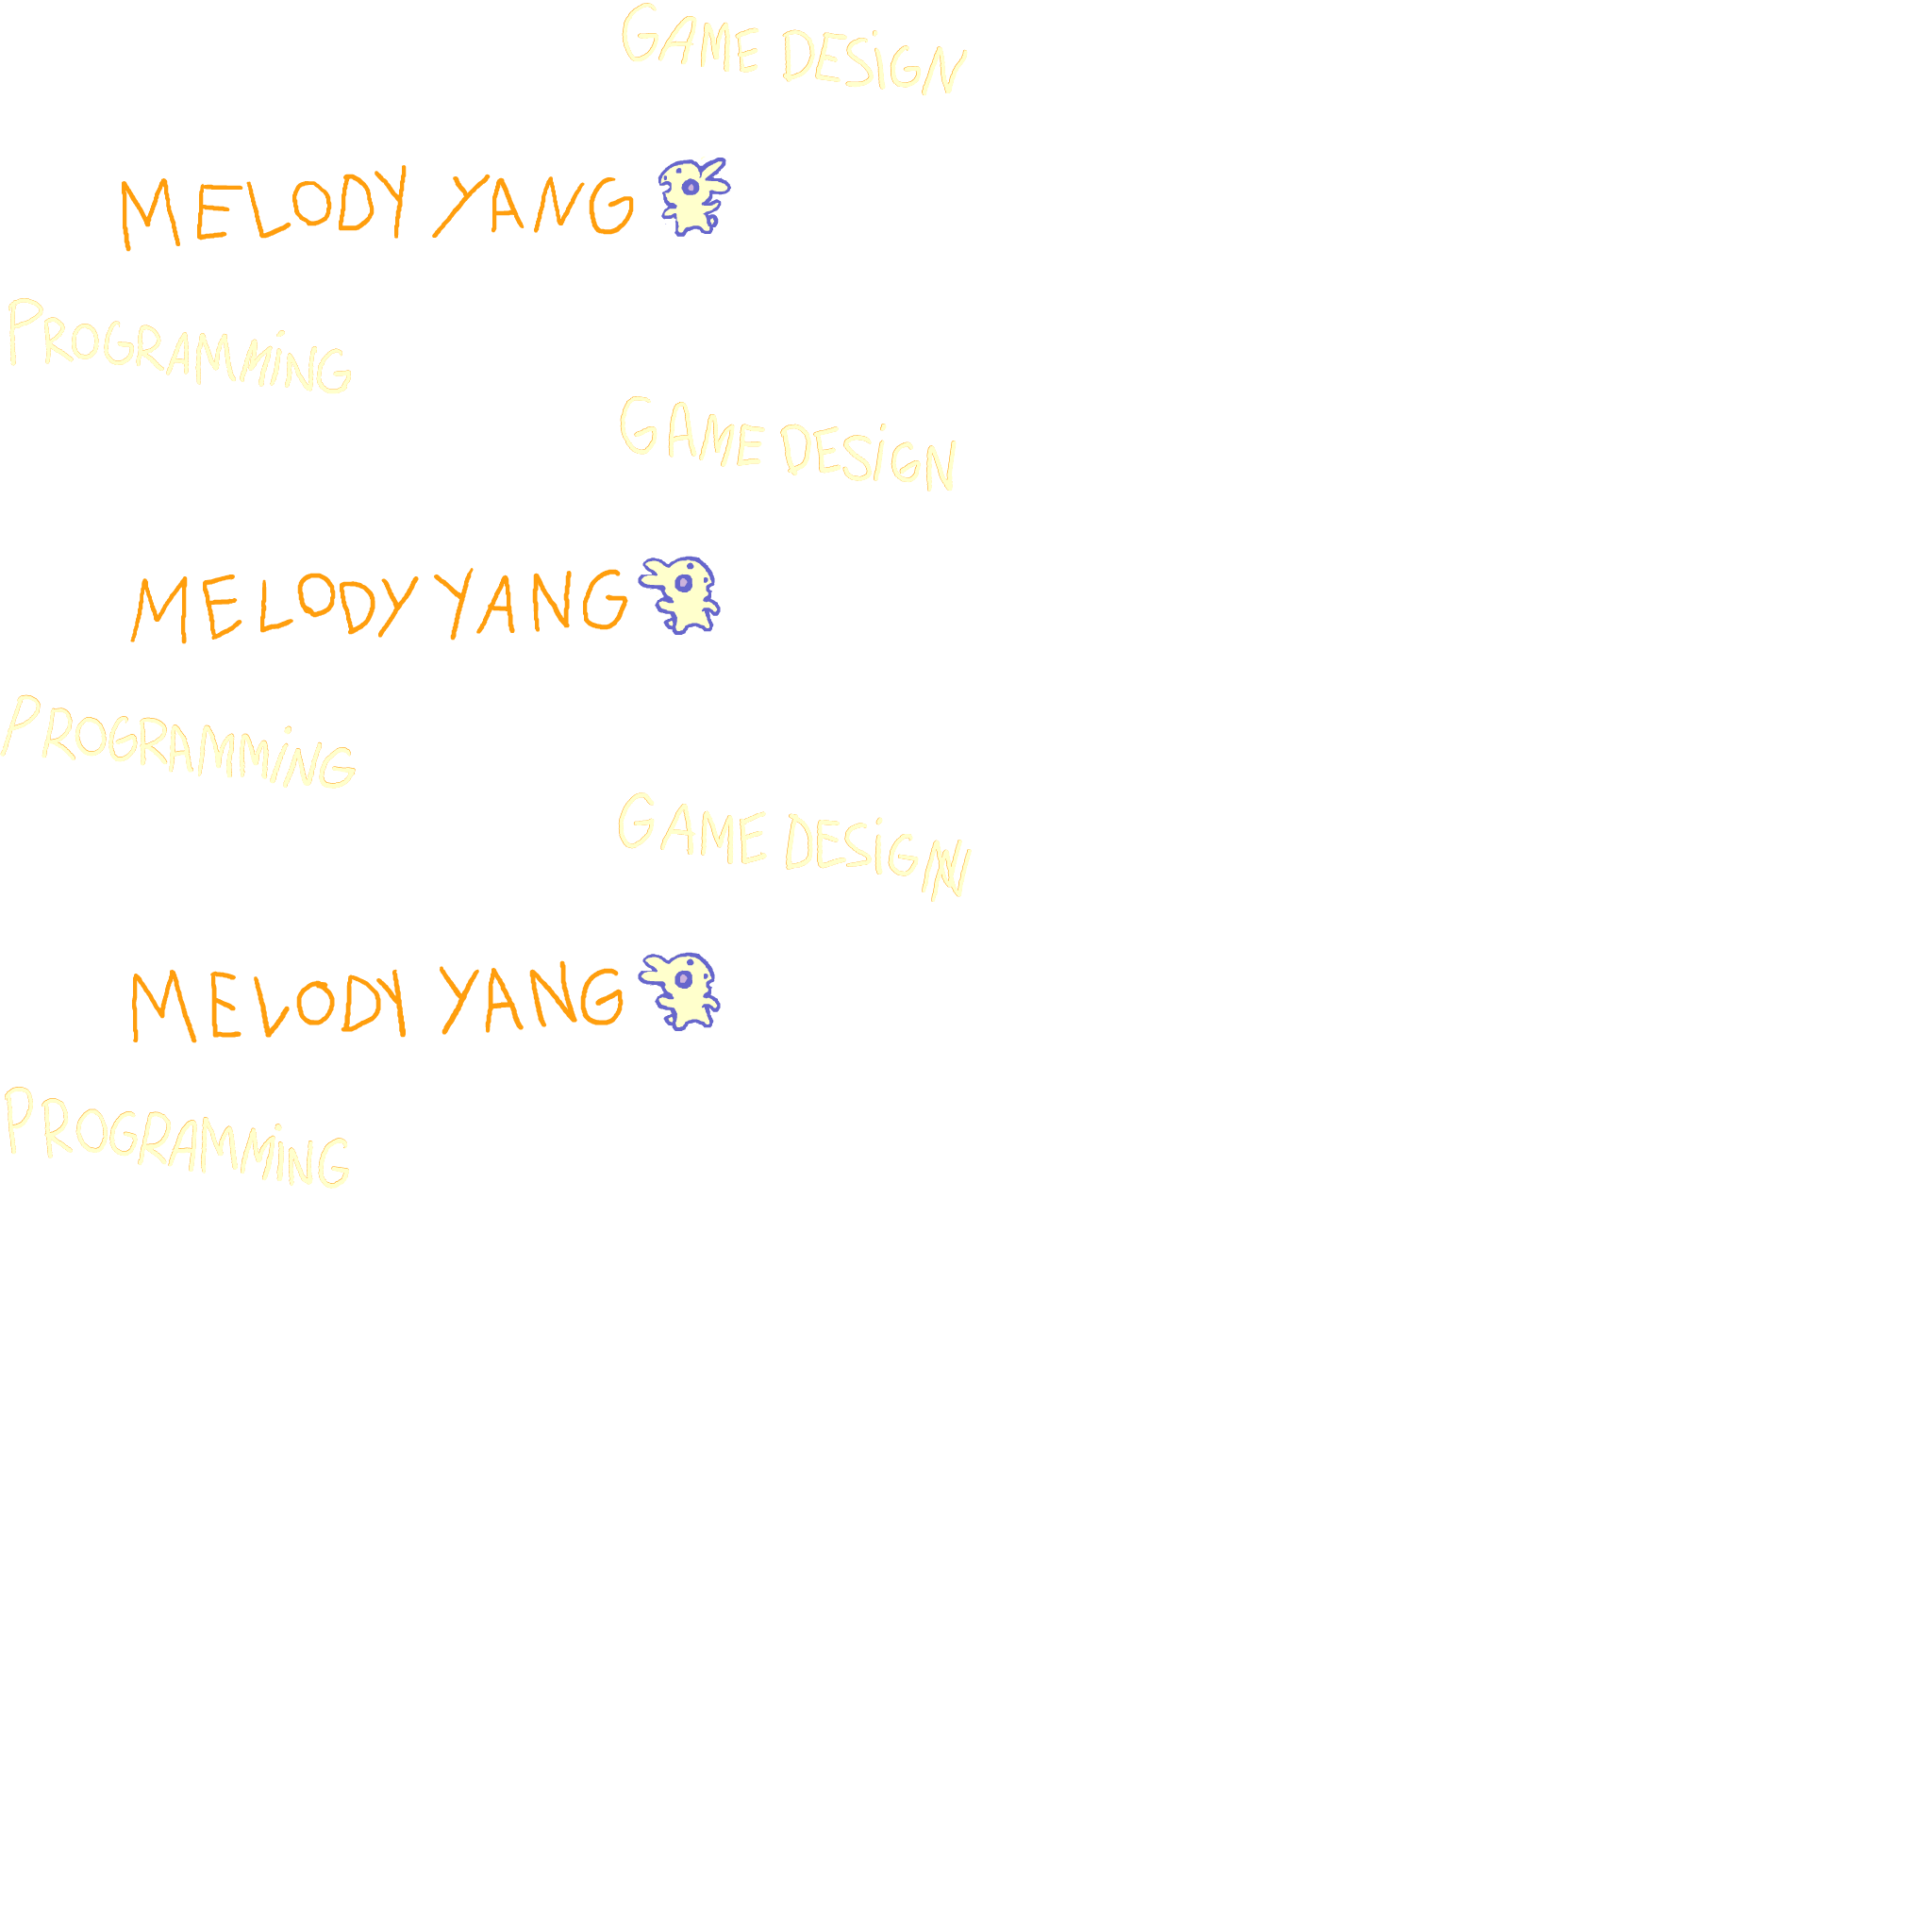 GAME DESiGN
MELODY YANG
PROGRAMMiNG
GAME DESiGN
MELODY YANG
PROGRAMMiNG
GAME DESiGN
MELODY YANG
PROGRAMMiNG